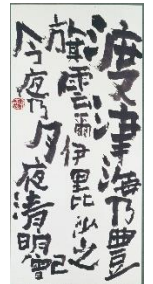 渡津海乃豊
旗雲爾伊里比沙之
今夜乃月夜清明